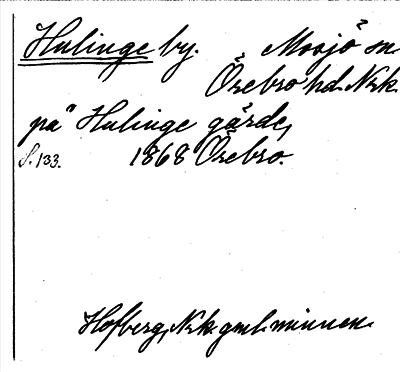 Hulinge by. Mosjö sn.
Örebro hd. Nrk.
på Hulinge gärde,
S. 133. 1868 Örebro.
Hofberg, Nrk. gml. minnen.